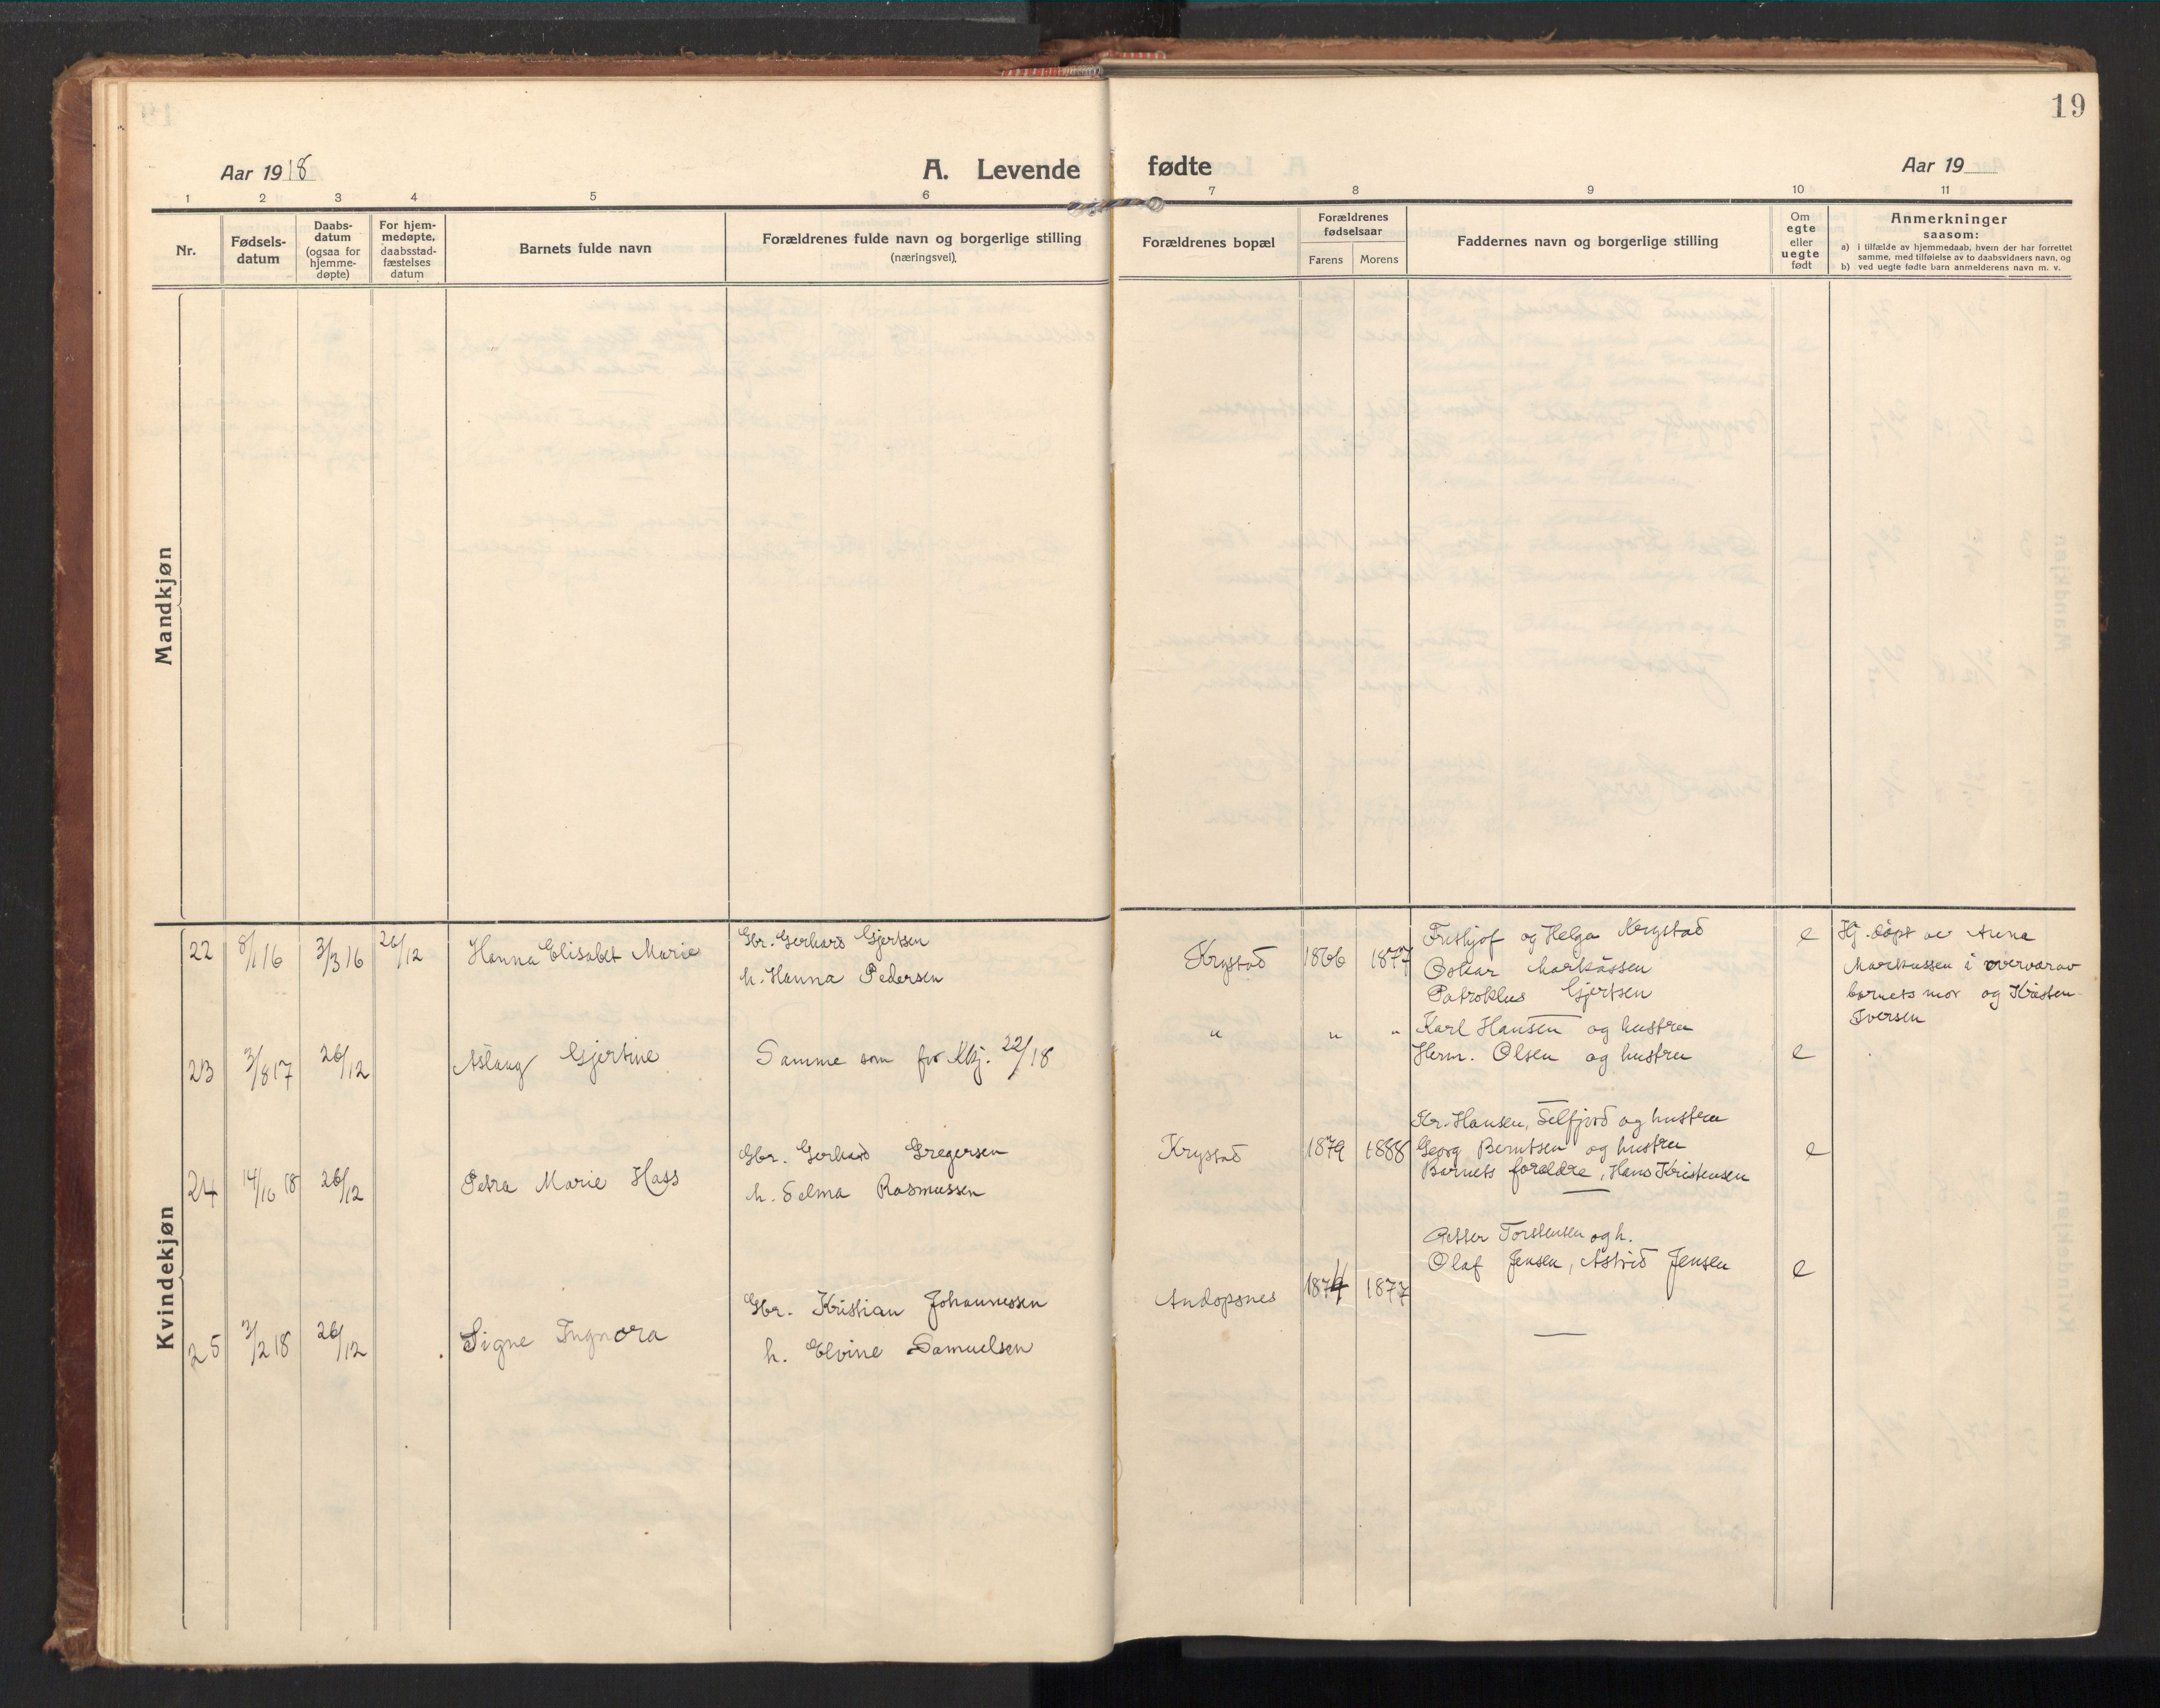 19
Aar 1918
A. Levende fødte
Aar 19
1 2 3 4 5 6 7 8 9 10 11
Nr.
Fødsels-
datum
Daabs-
datum
(ogsaa for
hjemme-
døpte)
For hjem-
medøpte,
daabsstad-
fæstelses
datum
Barnets fulde navn
Forældrenes fulde navn og borgerlige stilling
(næringsvei).
Forældrenes bopæl
Forældrenes
fødselsaar
Farens Morens
Faddernes navn og borgerlige stilling
Om
egte
eller
uegte
født
Anmerkninger
saasom:
a) i tilfælde av hjemmedaab, hvem der har forrettet
samme, med tilføielse av to daabsvidners navn, og
b) ved uegte fødte barn anmelderens navn m. v.
Mandkjøn
Kvindekjøn
22 8/1 16 3/3 16 26/12 Hanna Elisabet Marie
Gbr. Gerhard Gjertsen
h. Hanna Pedersen
Krystad 1866 1877
Frithjof og Helga Krystad
Oskar Markussen
Patroklus Gjertsen
e
Hj. døpt av Anna
Markussen i overvær av
barnets mor og Kristen
Iversen
23 3/8 17 26/12 Aslaug Gjertine
Samme som for Kkj. 22/18
" " "
Karl Hansen og hustru
Herm. Olsen og hustru
e
24 14/10 18 26/12 Petra Marie Hass
Gbr. Gerhard Gregersen
h. Selma Rasmussen
Krystad 1879 1888
Kr. Hansen, Selfjord og hustru
Georg Berntsen og hustru
Barnets forældre, Hans Kristensen
e
25 3/2 18 26/12 Signe Ingnora
Gbr. Kristian Johannessen
h. Elvine Samuelsen
Andopsnes 1874 1877
Torstensen og h.
Olaf Jensen, Astrid Jensen
e